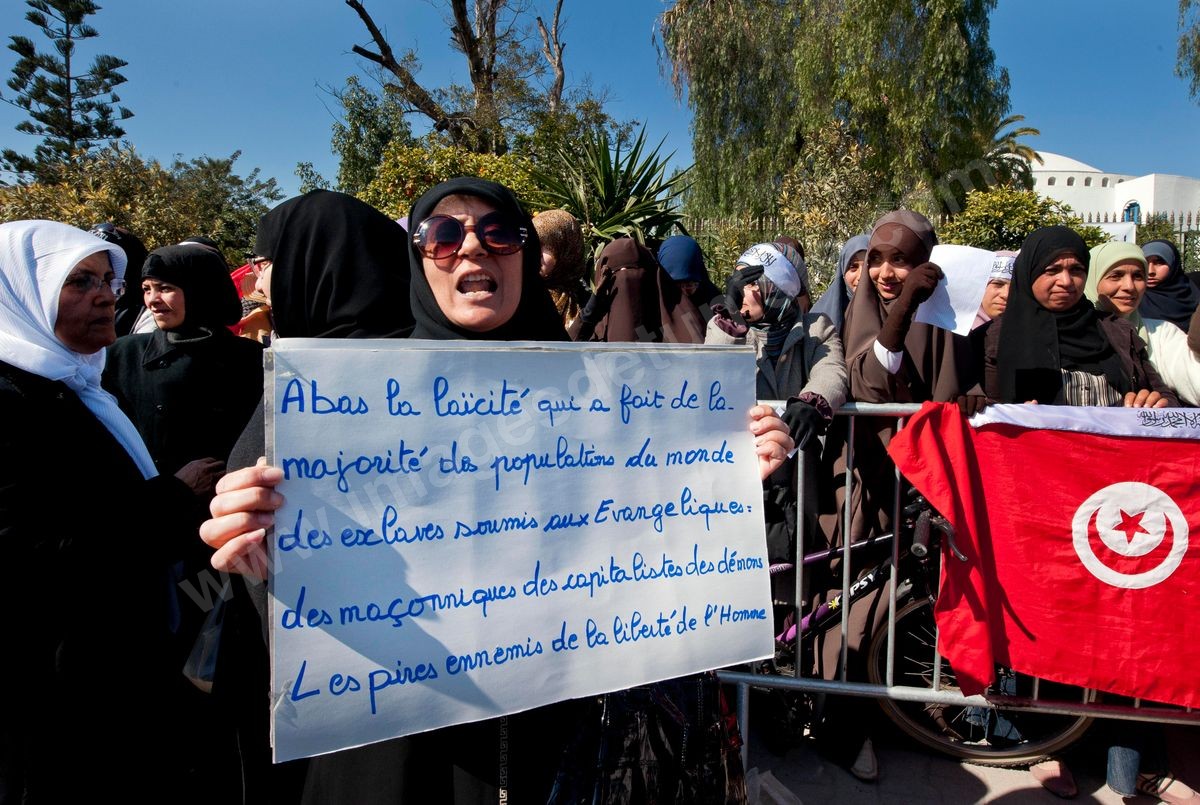 Abas la laïcité qui a fait de la
majorité des populations du monde
des esclaves soumis aux Evangeliques:
des maçonniques des capitalistes des démons
Les pires ennemis de la liberté de l'Homme